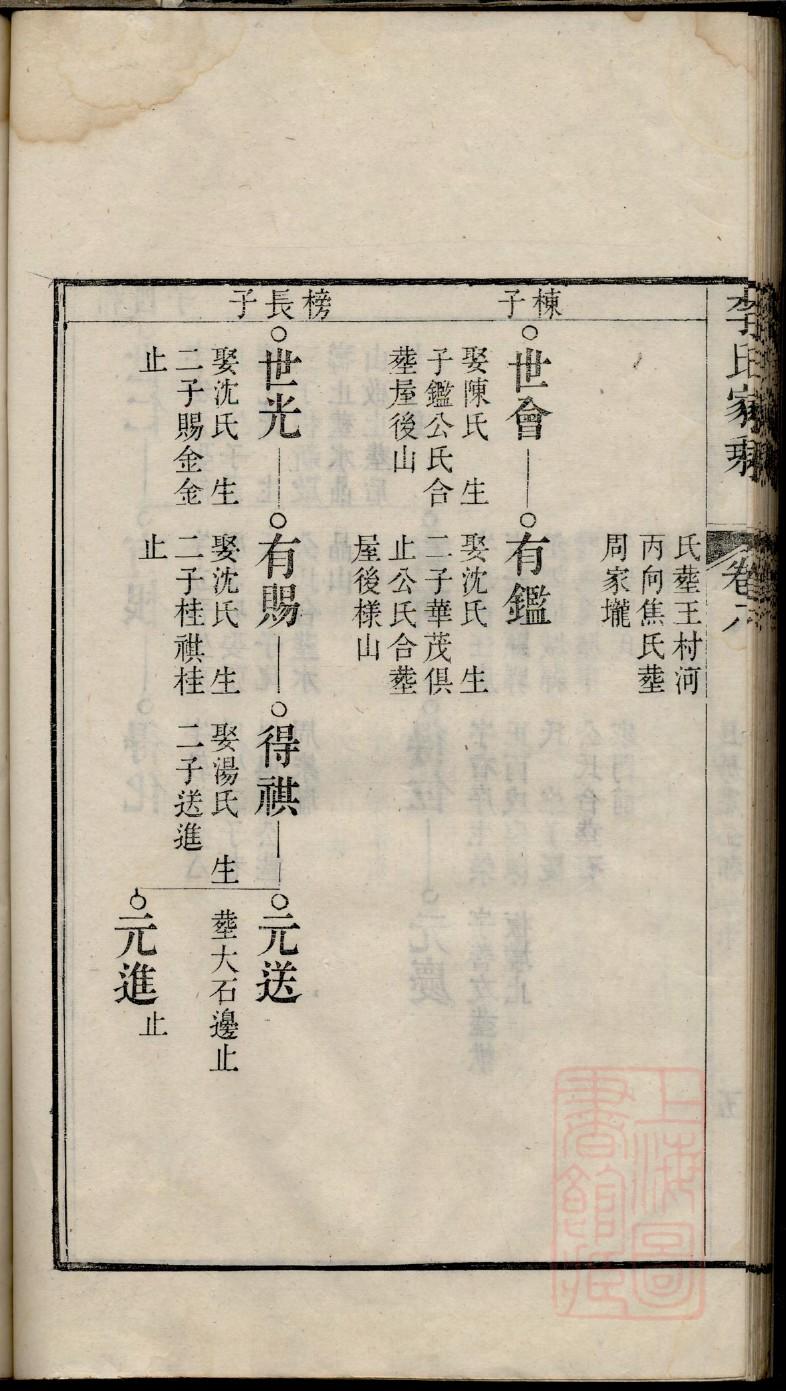 李氏家乘
卷六
氏塟王村河
丙向焦氏塟
周家壠
棟子
世會
娶陳氏 生
子鑑公氏合
塟屋後山
有鑑
娶沈氏 生
二子華茂俱
止公氏合塟
屋後樣山
榜長子
世光
娶沈氏 生
二子賜金金
止
有賜
娶沈氏 生
二子桂祺桂
止
得祺
娶湯氏 生
二子送進
元送
塟大石邊止
元進
止
上海圖
書館藏